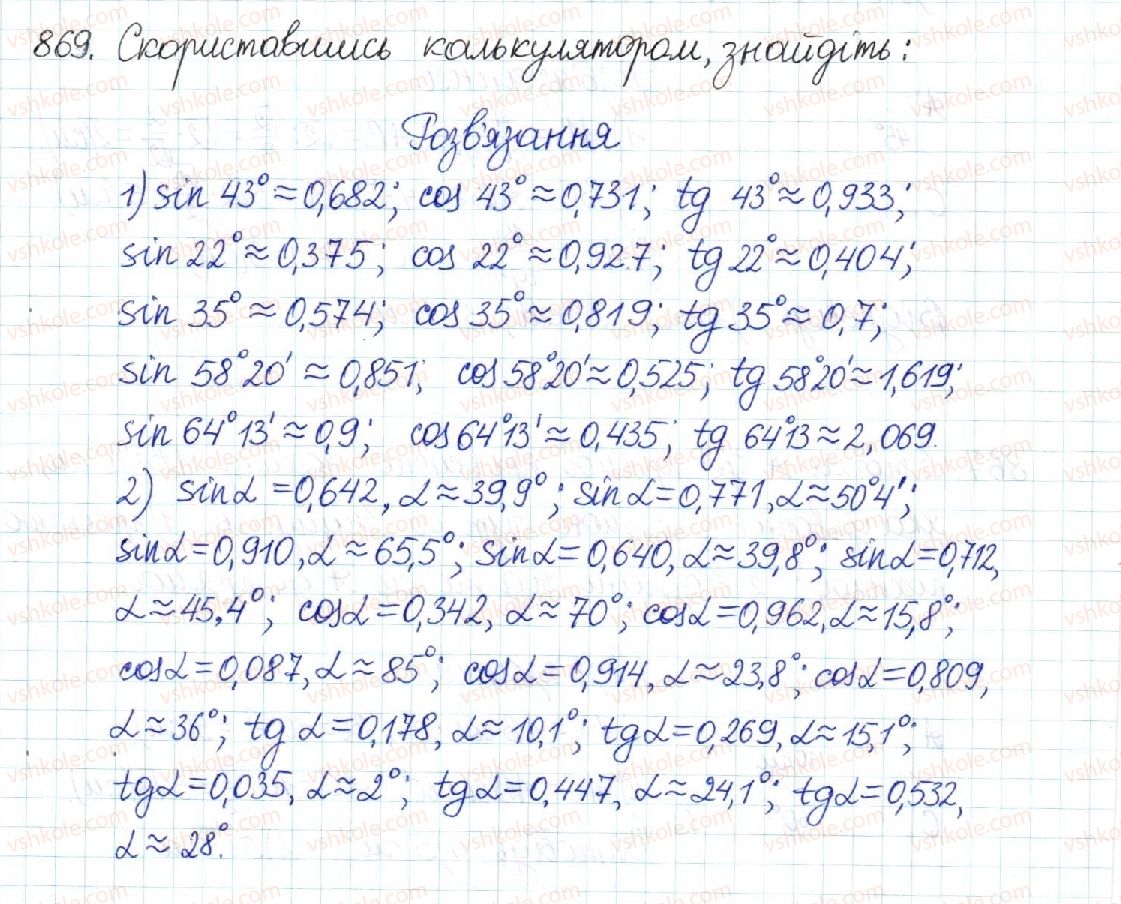 869. Скориставшись калькулятором, знайдіть:
Розв'язання
1) sin 43° ≈ 0,682; cos 43° ≈ 0,731; tg 43° ≈ 0,933;
sin 22° ≈ 0,375; cos 22° ≈ 0,927; tg 22° ≈ 0,404;
sin 35° ≈ 0,574; cos 35° ≈ 0,819; tg 35° ≈ 0,7;
sin 58°20' ≈ 0,851; cos 58°20' ≈ 0,525; tg 58°20' ≈ 1,619;
sin 64°13' ≈ 0,9; cos 64°13' ≈ 0,435; tg 64°13 ≈ 2,069.
2) sin α = 0,642, α ≈ 39,9°; sin α = 0,771, α ≈ 50°4';
sin α = 0,910, α ≈ 65,5°; sin α = 0,640, α ≈ 39,8°; sin α = 0,712,
α ≈ 45,4°; cos α = 0,342, α ≈ 70°; cos α = 0,962, α ≈ 15,8°;
cos α = 0,087, α ≈ 85°; cos α = 0,914, α ≈ 23,8°; cos α = 0,809,
α ≈ 36°; tg α = 0,178, α ≈ 10,1°; tg α = 0,269, α ≈ 15,1°;
tg α = 0,035, α ≈ 2°; tg α = 0,447, α ≈ 24,1°; tg α = 0,532,
α ≈ 28°.
vshkole.com